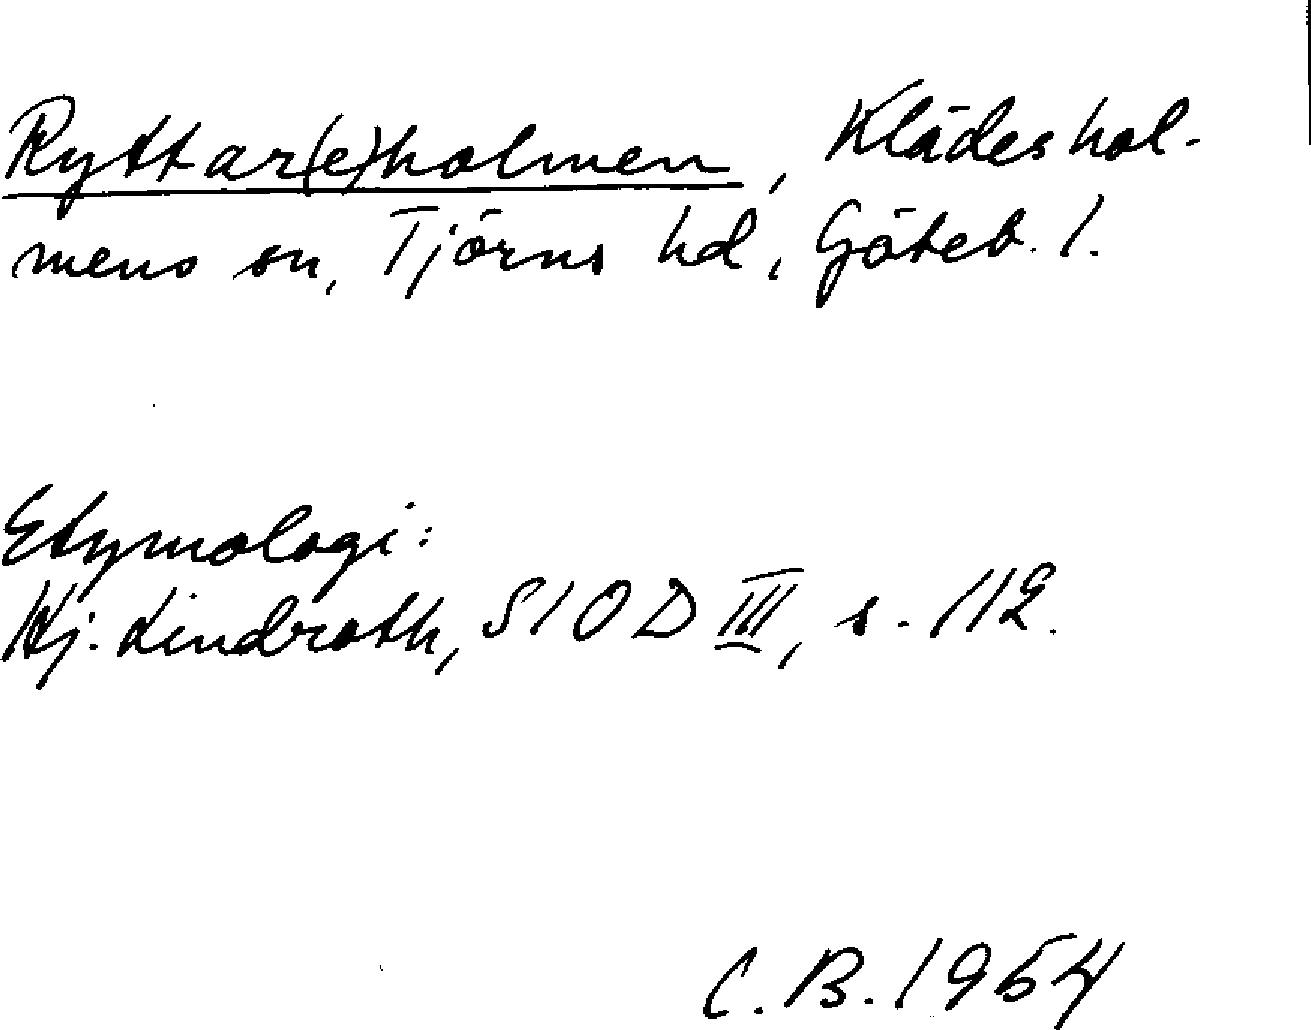 Ryttar(e)holmen, Klädeshol-
mens sn, Tjörns hd, Göteb. l.
Etymologi:
Hj. Lindroth, SIOD III, s. 112.
C. B. 1954